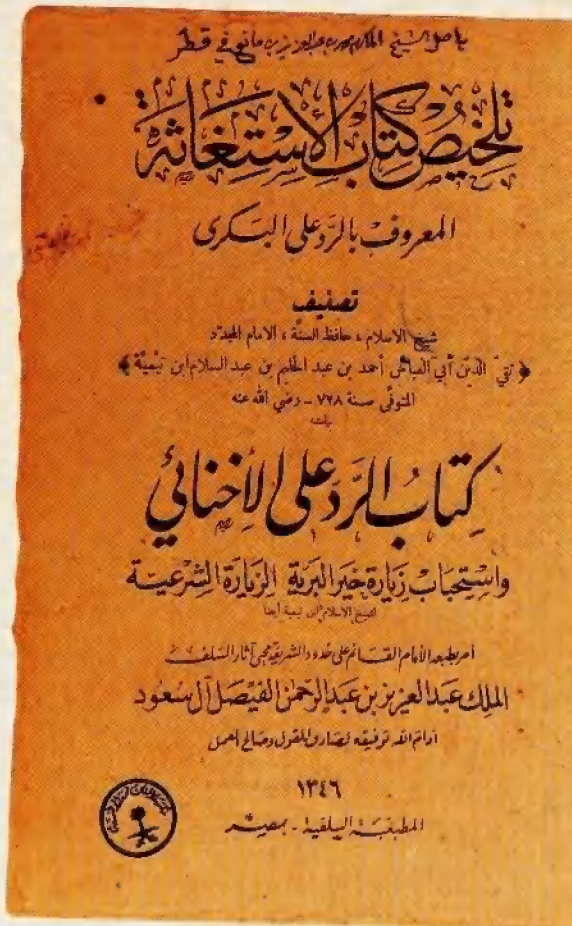 الشيخ محمد بن عبد العزيز بن مانع في قطر
تلخيص كتاب الاستغاثة
المعروف بالرد على البكرى
تصنيف
شيخ الاسلام ، حافظ السنّة ، الامام المجدّد
﴿ تقيّ الدين أبي العباس أحمد بن عبد الحليم بن عبد السلام ابن تيميّة ﴾
المتوفّى سنة ٧٢٨ – رضي الله عنه
يليه
كتاب الرد على الأخنائي
واستحباب زيارة خير البرية الزيارة الشرعية
لشيخ الاسلام ابن تيمية أيضا
أمر بطبعه الإمام القائم على حدود الشريعة محيي آثار السلف
الملك عبد العزيز بن عبد الرحمن الفيصل آل سعود
أدام الله توفيقه لصادق القول وصالح العمل
١٣٤٦
المطبعة السلفية - بمصر